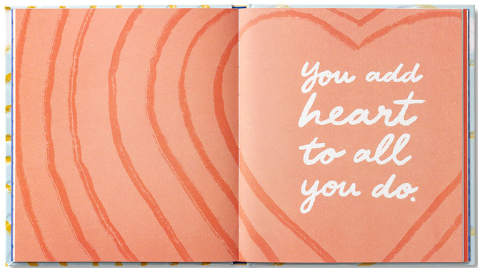 You add
heart
to all
you do.